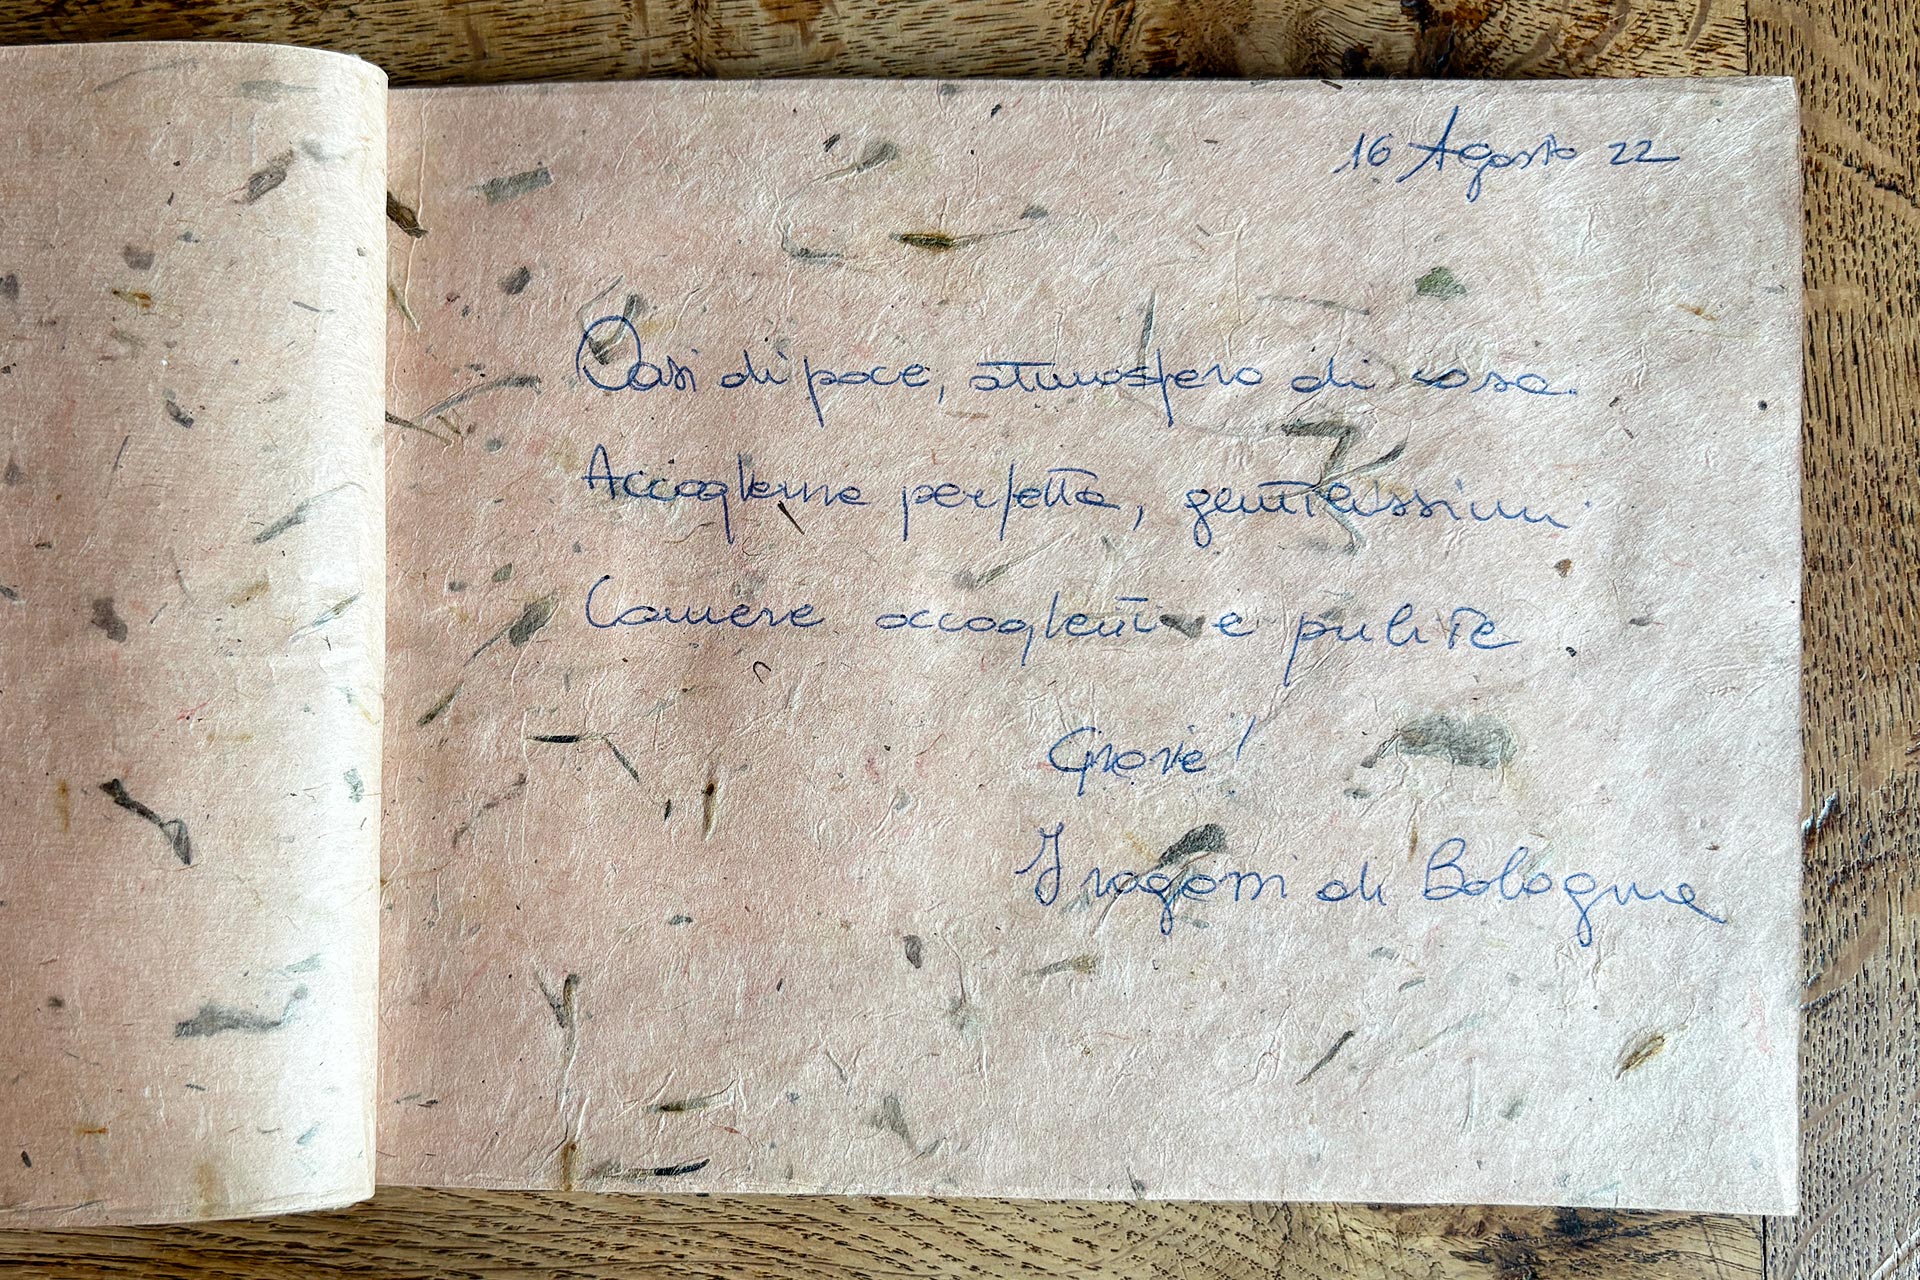 16 Agosto 22
Oasi di pace, atmosfera di casa.
Accoglienza perfetta, gentilissimi.
Camere accoglienti e pulite
Grazie!
I ragazzi di Bologna